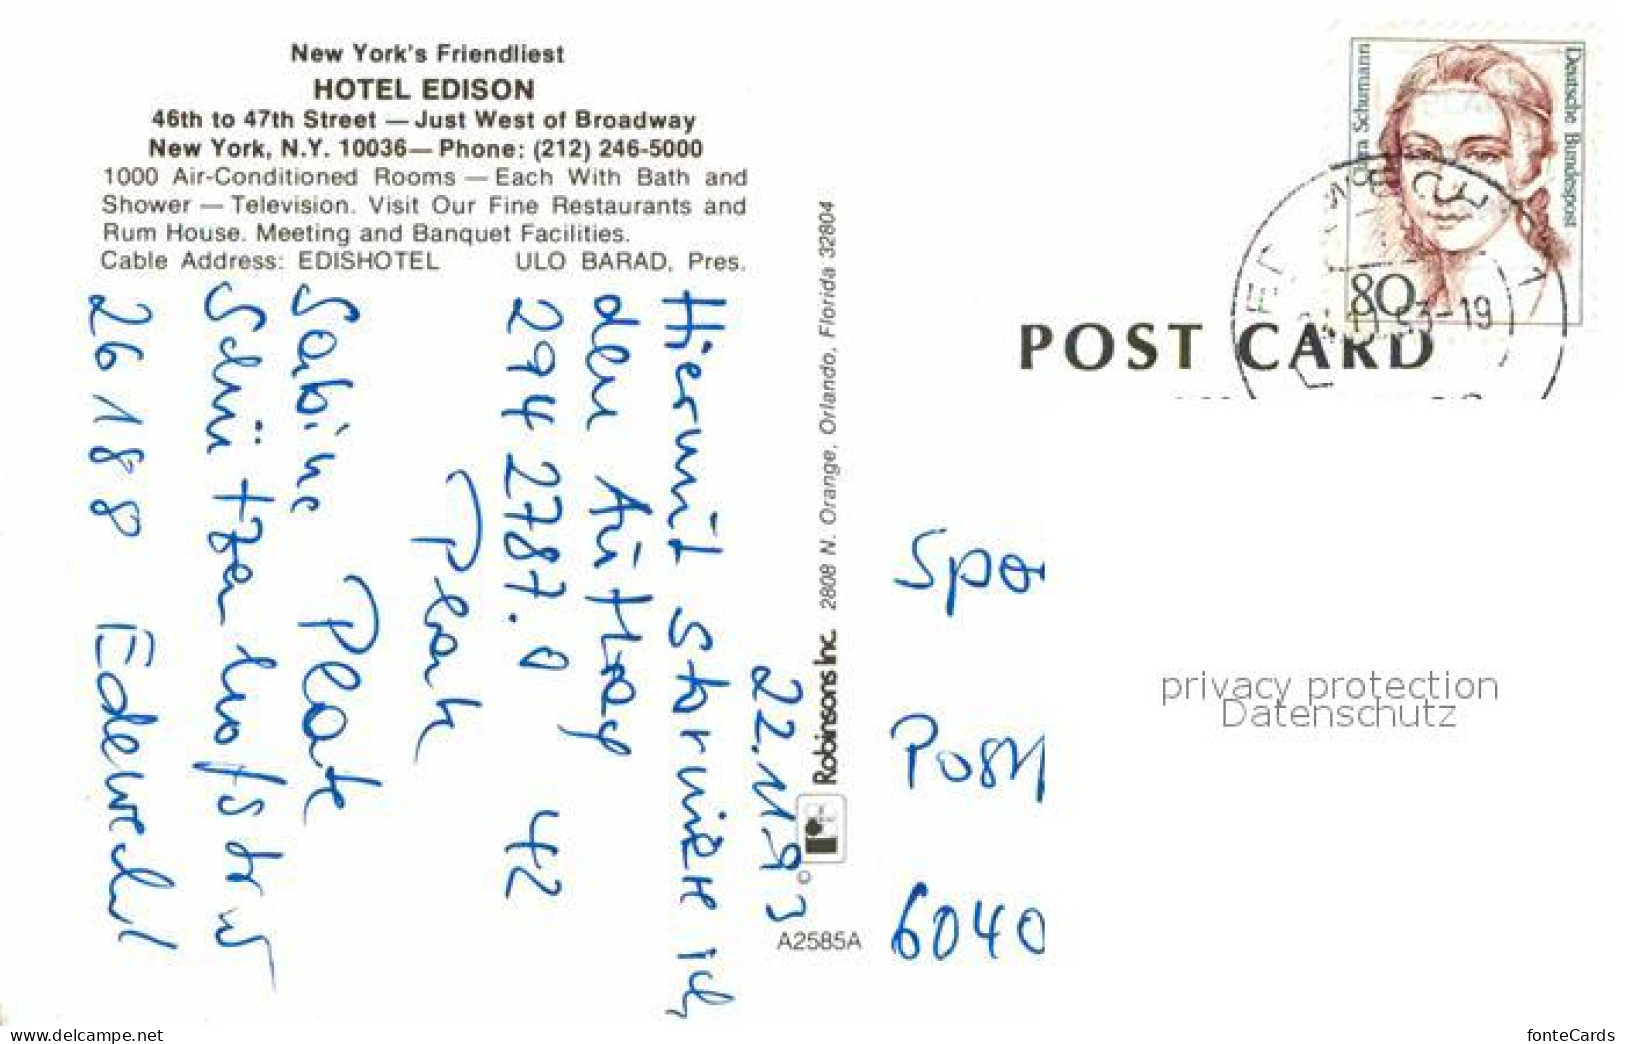 New York's Friendliest
HOTEL EDISON
46th to 47th Street — Just West of Broadway
New York, N.Y. 10036 — Phone: (212) 246-5000
1000 Air-Conditioned Rooms — Each With Bath and
Shower — Television. Visit Our Fine Restaurants and
Rum House. Meeting and Banquet Facilities.
Cable Address: EDISHOTEL ULO BARAD, Pres.
22.11.93
Hiermit storniere ich
den Auftrag
294 2787.0 42
Plak
Sabine Plate
26188 Edewecht
© Robinsons Inc. 2808 N. Orange, Orlando, Florida 32804
A2585A
POST CARD
Clara Schumann
Deutsche Bundespost
80
-19
Spa
Post
6040
privacy protection
Datenschutz
www.delcampe.net
fonteCards